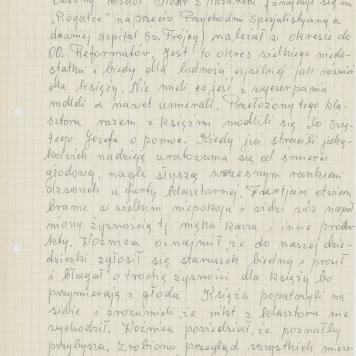 "Rogatce" naprzeciw Przychodni Specjalistycznej a
dawniej szpital Św. Trójcy) należał w okresie do
OO. Reformatów, jest to okres wielkiego niedo-
statku i biedy dla ludności cywilnej jak również
dla księży. Nie mieli co jeść z wyczerpania
mdleli a nawet umierali. Przełożony tego kla-
sztoru razem z księżmi modlili się do Świę-
tego Józefa o pomoc. Kiedy już stracili jaką-
kolwiek nadzieję uratowania się od śmierci
głodowej, nagle słyszą wczesnym rankiem
dzwonek u furty klasztornej. Furtjan otwiera
bramę w wielkim niepokoju i widzi wóz napeł
niony żywnością tj. mąka kasza i inne produ-
kty. Woźnica oznajmił, że do naszej dzie-
dziczki zgłosił się staruszek biedny i prosił
i błagał o trochę żywności dla księży bo
przymierają z głodu. Księża popatrzyli na
siebie i zrozumieli, że nikt z klasztoru nie
wychodził. Woźnica powiedział, że poznałby
przybysza. Zrobiono przegląd wszystkich